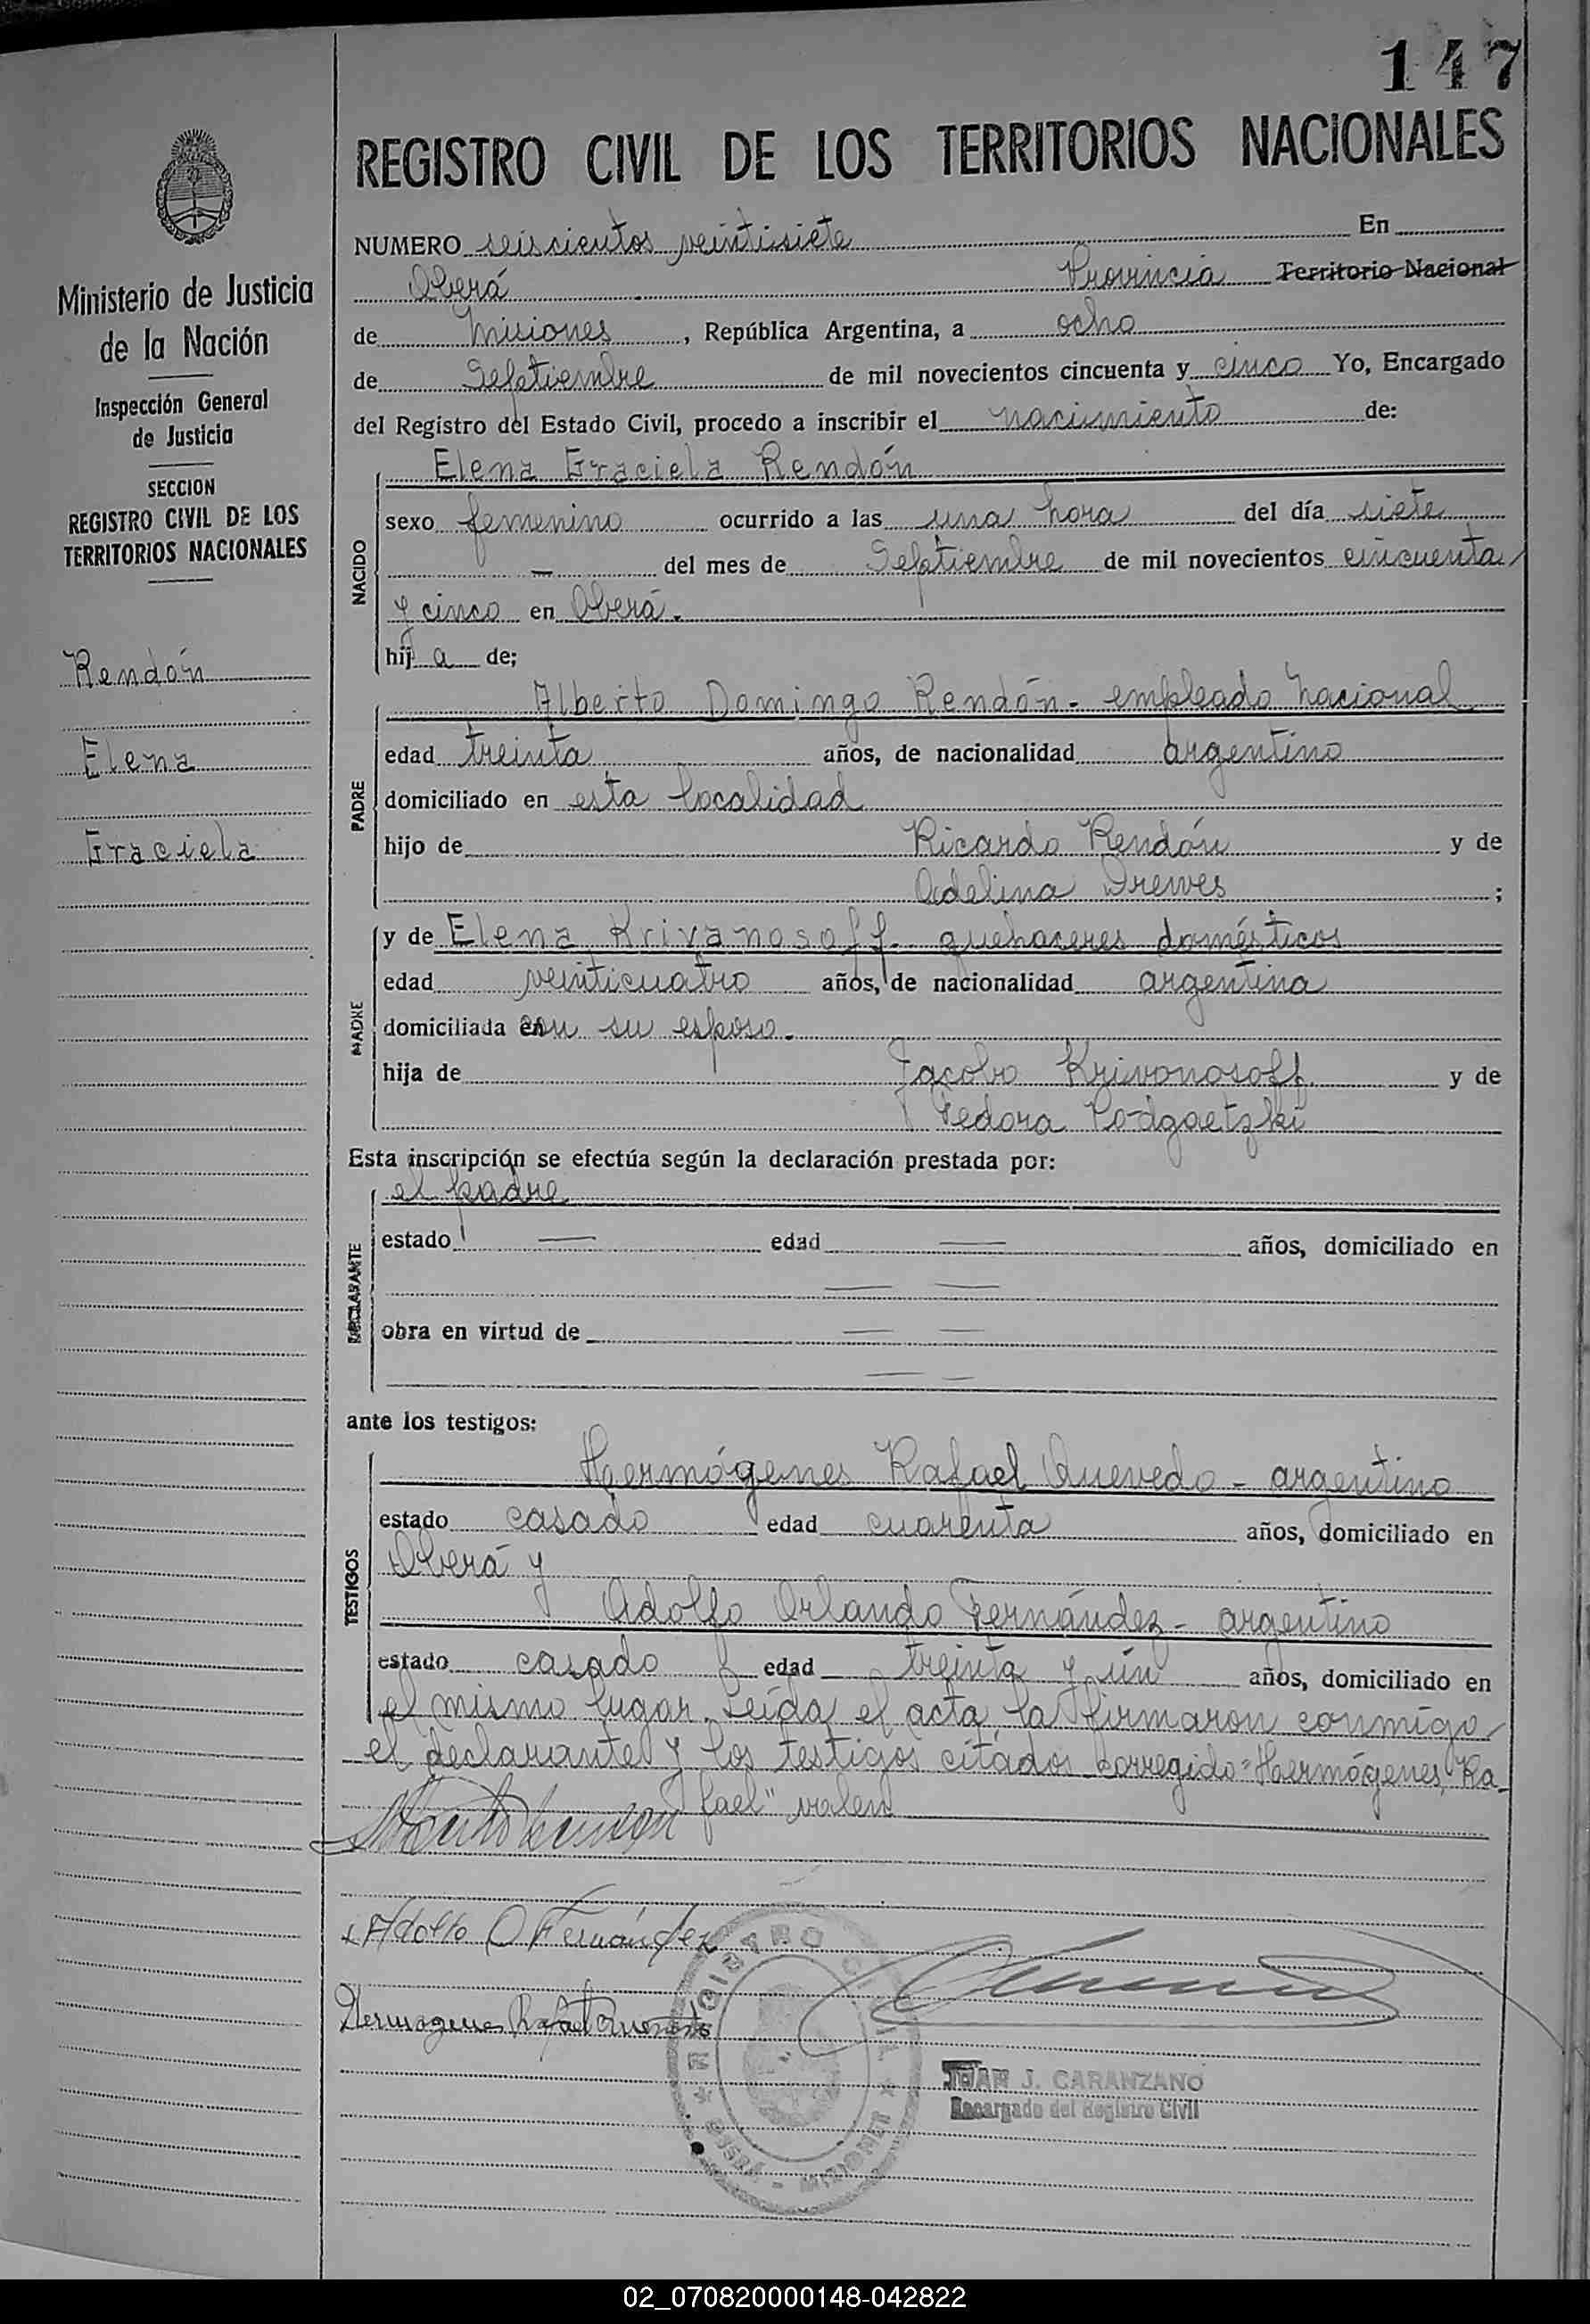 147
REGISTRO CIVIL DE LOS TERRITORIOS NACIONALES
Ministerio de Justicia
de la Nación
Inspección General
de Justicia
SECCION
REGISTRO CIVIL DE LOS
TERRITORIOS NACIONALES
Rendón
Elena
Graciela
NUMERO seiscientos veintisiete En
Oberá Provincia Territorio Nacional
de Misiones, República Argentina, a ocho
de Septiembre de mil novecientos cincuenta y cinco Yo, Encargado
del Registro del Estado Civil, procedo a inscribir el nacimiento de:
NACIDO
Elena Graciela Rendón
sexo femenino ocurrido a las una hora del día siete
— del mes de Septiembre de mil novecientos cincuenta
y cinco en Oberá.
hij a de;
PADRE
Alberto Domingo Rendón - empleado nacional
edad treinta años, de nacionalidad argentino
domiciliado en esta localidad
hijo de Ricardo Rendón y de
Adelina Drewes ;
MADRE
y de Elena Krivanosoff - quehaceres domésticos
edad veinticuatro años, de nacionalidad argentina
domiciliada en con su esposo.
hija de Jacobo Krivonosoff y de
Fedora Podgaetzki
Esta inscripción se efectúa según la declaración prestada por:
DECLARANTE
el padre
estado — edad — años, domiciliado en
— —
obra en virtud de — —
— —
ante los testigos:
TESTIGOS
Hermógenes Rafael Quevedo - argentino
estado casado edad cuarenta años, domiciliado en
Oberá y
Adolfo Orlando Fernández - argentino
estado casado edad treinta y un años, domiciliado en
el mismo lugar. Leída el acta, la firmaron conmigo
el declarante y los testigos citados. Corregido "Hermógenes, Ra-
fael" valen
Adolfo O Fernández
Hermogenes Rafael Quevedo
REGISTRO CIVIL
OBERÁ - MISIONES
JUAN J. CARANZANO
Encargado del Registro Civil
02_070820000148-042822